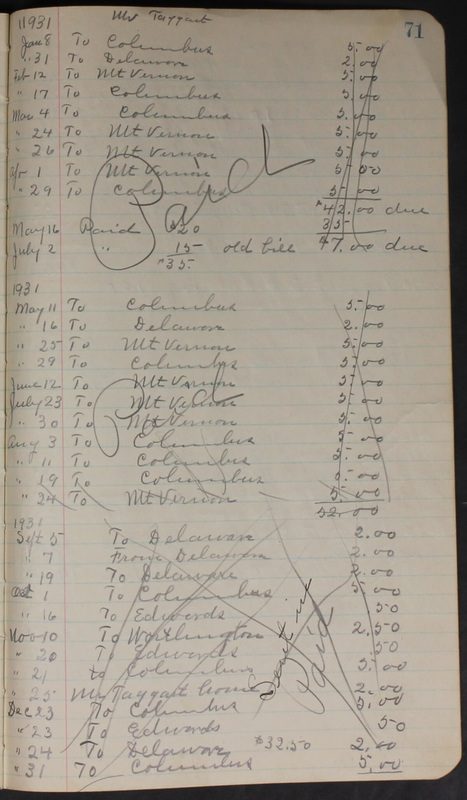 71
1931 Mr Taggart
Jan 8 To Columbus 5.00
" 31 To Delaware 2.00
Feb 12 To Mt Vernon 5.00
" 17 To Columbus 5.00
Mar 4 To Columbus 5.00
" 24 To Mt Vernon 5.00
" 26 To Mt Vernon 5.00
Apr 1 To Mt Vernon 5.00
" 29 To Columbus 5.00
$42.00 due
May 16 Paid $20 35
July 2 " 15 old bill 47.00 due
$35.
Paid
1931
May 11 To Columbus 5.00
" 16 To Delaware 2.00
" 25 To Mt Vernon 5.00
" 29 To Columbus 5.00
June 12 To Mt Vernon 5.00
July 23 To Mt Vernon 5.00
" 30 To Mt Vernon 5.00
Aug 3 To Columbus 5.00
" 11 To Columbus 5.00
" 19 To Columbus 5.00
" 24 To Mt Vernon 5.00
52.00
Paid
1931
Sept 5 To Delaware 2.00
" 7 From Delaware 2.00
" 19 To Delaware 2.00
Oct 1 To Columbus 5.00
" 16 To Edwards 50
Nov 10 To Worthington 2.50
" 20 To Edwards 50
" 21 to Columbus 5.00
" 25 Mr Taggart 2.00
Dec 23 To Columbus 5.00
" 23 To Edwards 50
" 24 To Delaware $32.50 2.00
" 31 To Columbus 5.00
Sent in
Paid